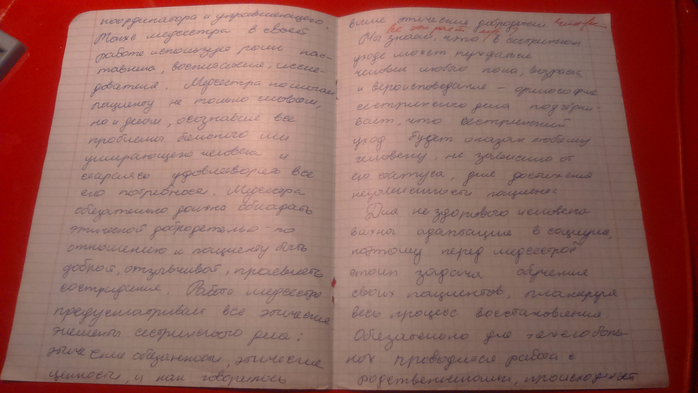 координатора и управляющего.
Также медсестра в своей
работе использует роли нас-
тавника, воспитателя, иссле-
дователя. Медсестра помогает
пациенту не только словом,
но и делом, осознавая все
проблемы больного или
умирающего человека и
стараясь удовлетворить все
его потребности. Медсестра
обязательно должна обладать
этической добродетелью по
отношению к пациенту быть
доброй, отзывчивой, проявлять
сострадание. Работа медсестры
предусматривает все этические
элементы сестринского дела:
этические обязанности, этические
ценности, и как говорилось
выше этические добродетели
Мы знаем, что в сестринском
уходе может нуждаться
человек любого пола, возраста
и вероисповедания - философия
сестринского дела подчёрки-
вает, что сестринский
уход будет оказан любому
человеку, не зависимо от
его статуса, для достижения
независимости пациента
Для не здорового человека
важна адаптация в социуме,
поэтому перед медсестрой
стоит задача обучения
своих пациентов, планируя
весь процесс восстановления
Обязательно для тяжелоболь-
ных проводится работа с
родственниками, происходит